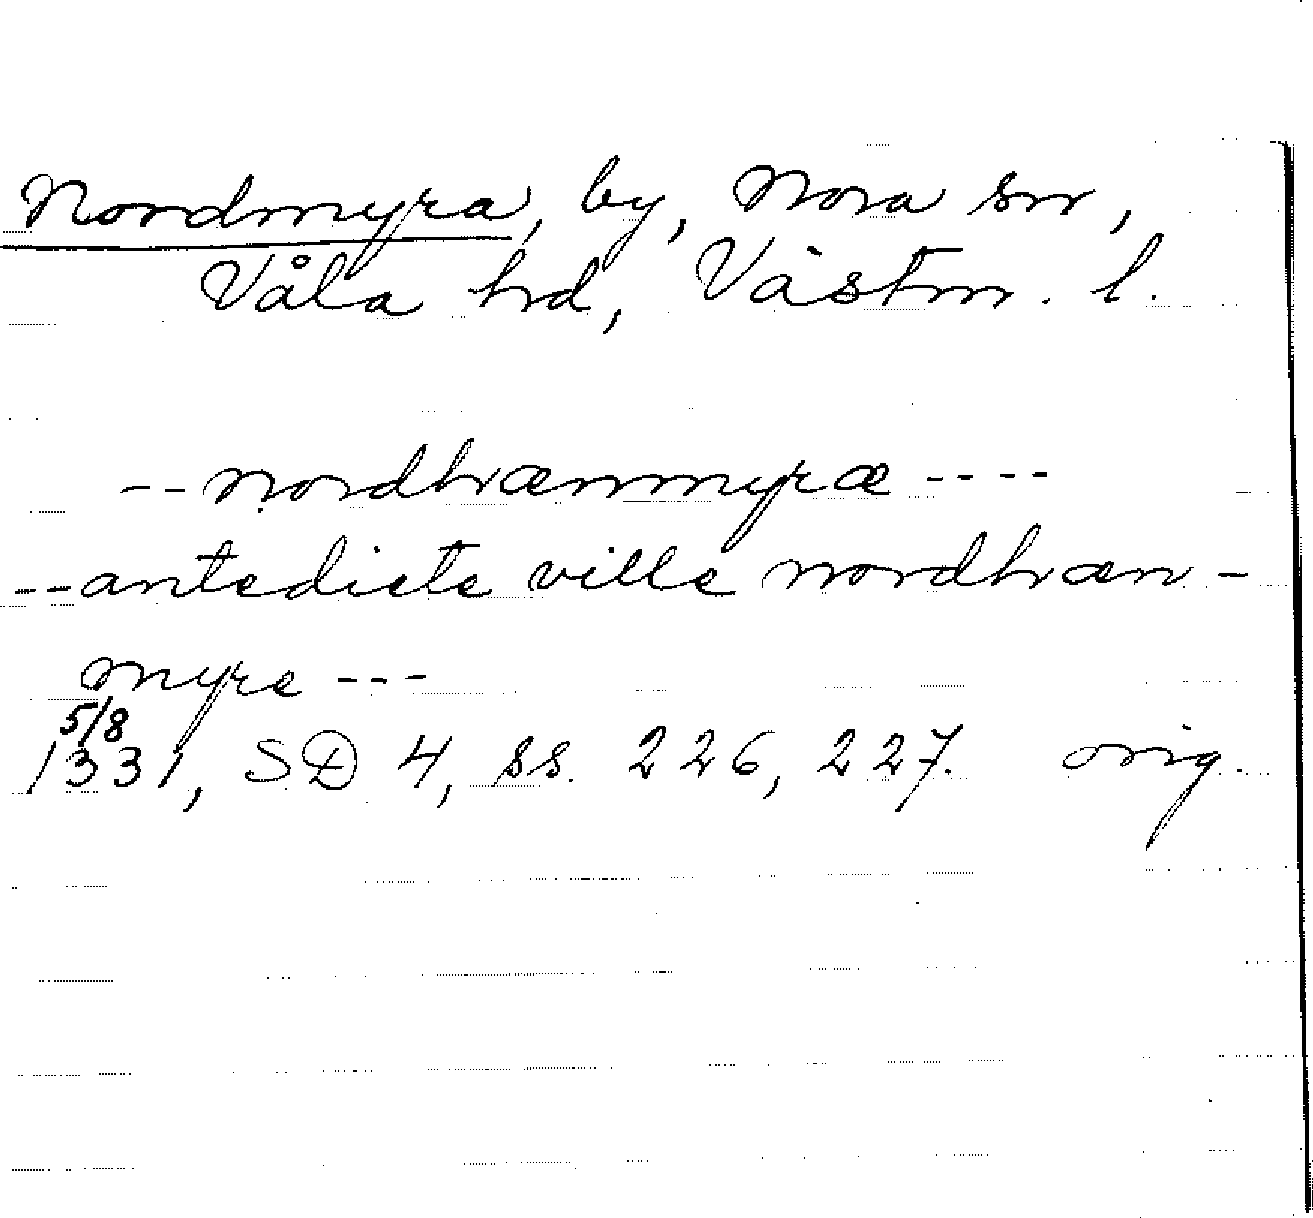 Nordmyra, by, Nora sn,
Våla hd, Västm. l.
--nordhænmyræ----
--antedicte ville nordhæn-
myre---
5/8
1331, SD 4, ss. 226, 227. orig.